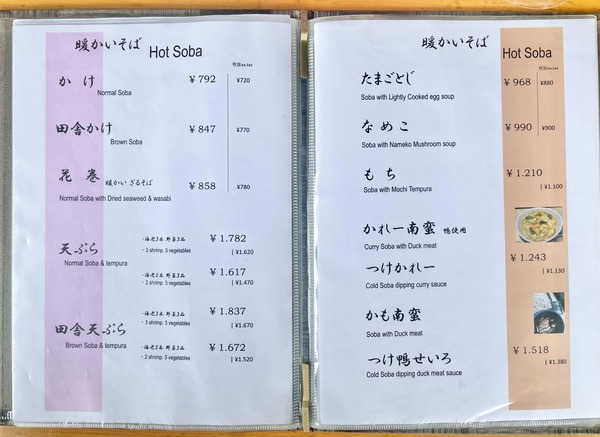 暖かいそば Hot Soba
税抜ex.tax
かけ ¥792 ¥720
Normal Soba
田舎かけ ¥847 ¥770
Brown Soba
花巻 暖かいざるそば ¥858 ¥780
Normal Soba with Dried seaweed & wasabi
・海老3本 野菜3品 ¥1.782
天ぷら ・3 shrimp. 3 vegetables | ¥1.620
Normal Soba & tempura
・海老2本 野菜3品 ¥1.617
・2 shrimp. 3 vegetables | ¥1.470
・海老3本 野菜3品 ¥1.837
田舎天ぷら ・3 shrimp. 3 vegetables | ¥1.670
Brown Soba & tempura
・海老2本 野菜3品 ¥1.672
・2 shrimp. 3 vegetables | ¥1.520
暖かいそば Hot Soba
税抜ex.tax
たまごとじ ¥968 ¥880
Soba with Lightly Cooked egg soup
なめこ ¥990 ¥900
Soba with Nameko Mushroom soup
もち ¥1.210
Soba with Mochi Tempura | ¥1.100
かれー南蛮 鴨使用
Curry Soba with Duck meat
つけかれー ¥1.243
Cold Soba dipping curry sauce | ¥1.130
かも南蛮
Soba with Duck meat
つけ鴨せいろ ¥1.518
Cold Soba dipping duck meat sauce | ¥1.380